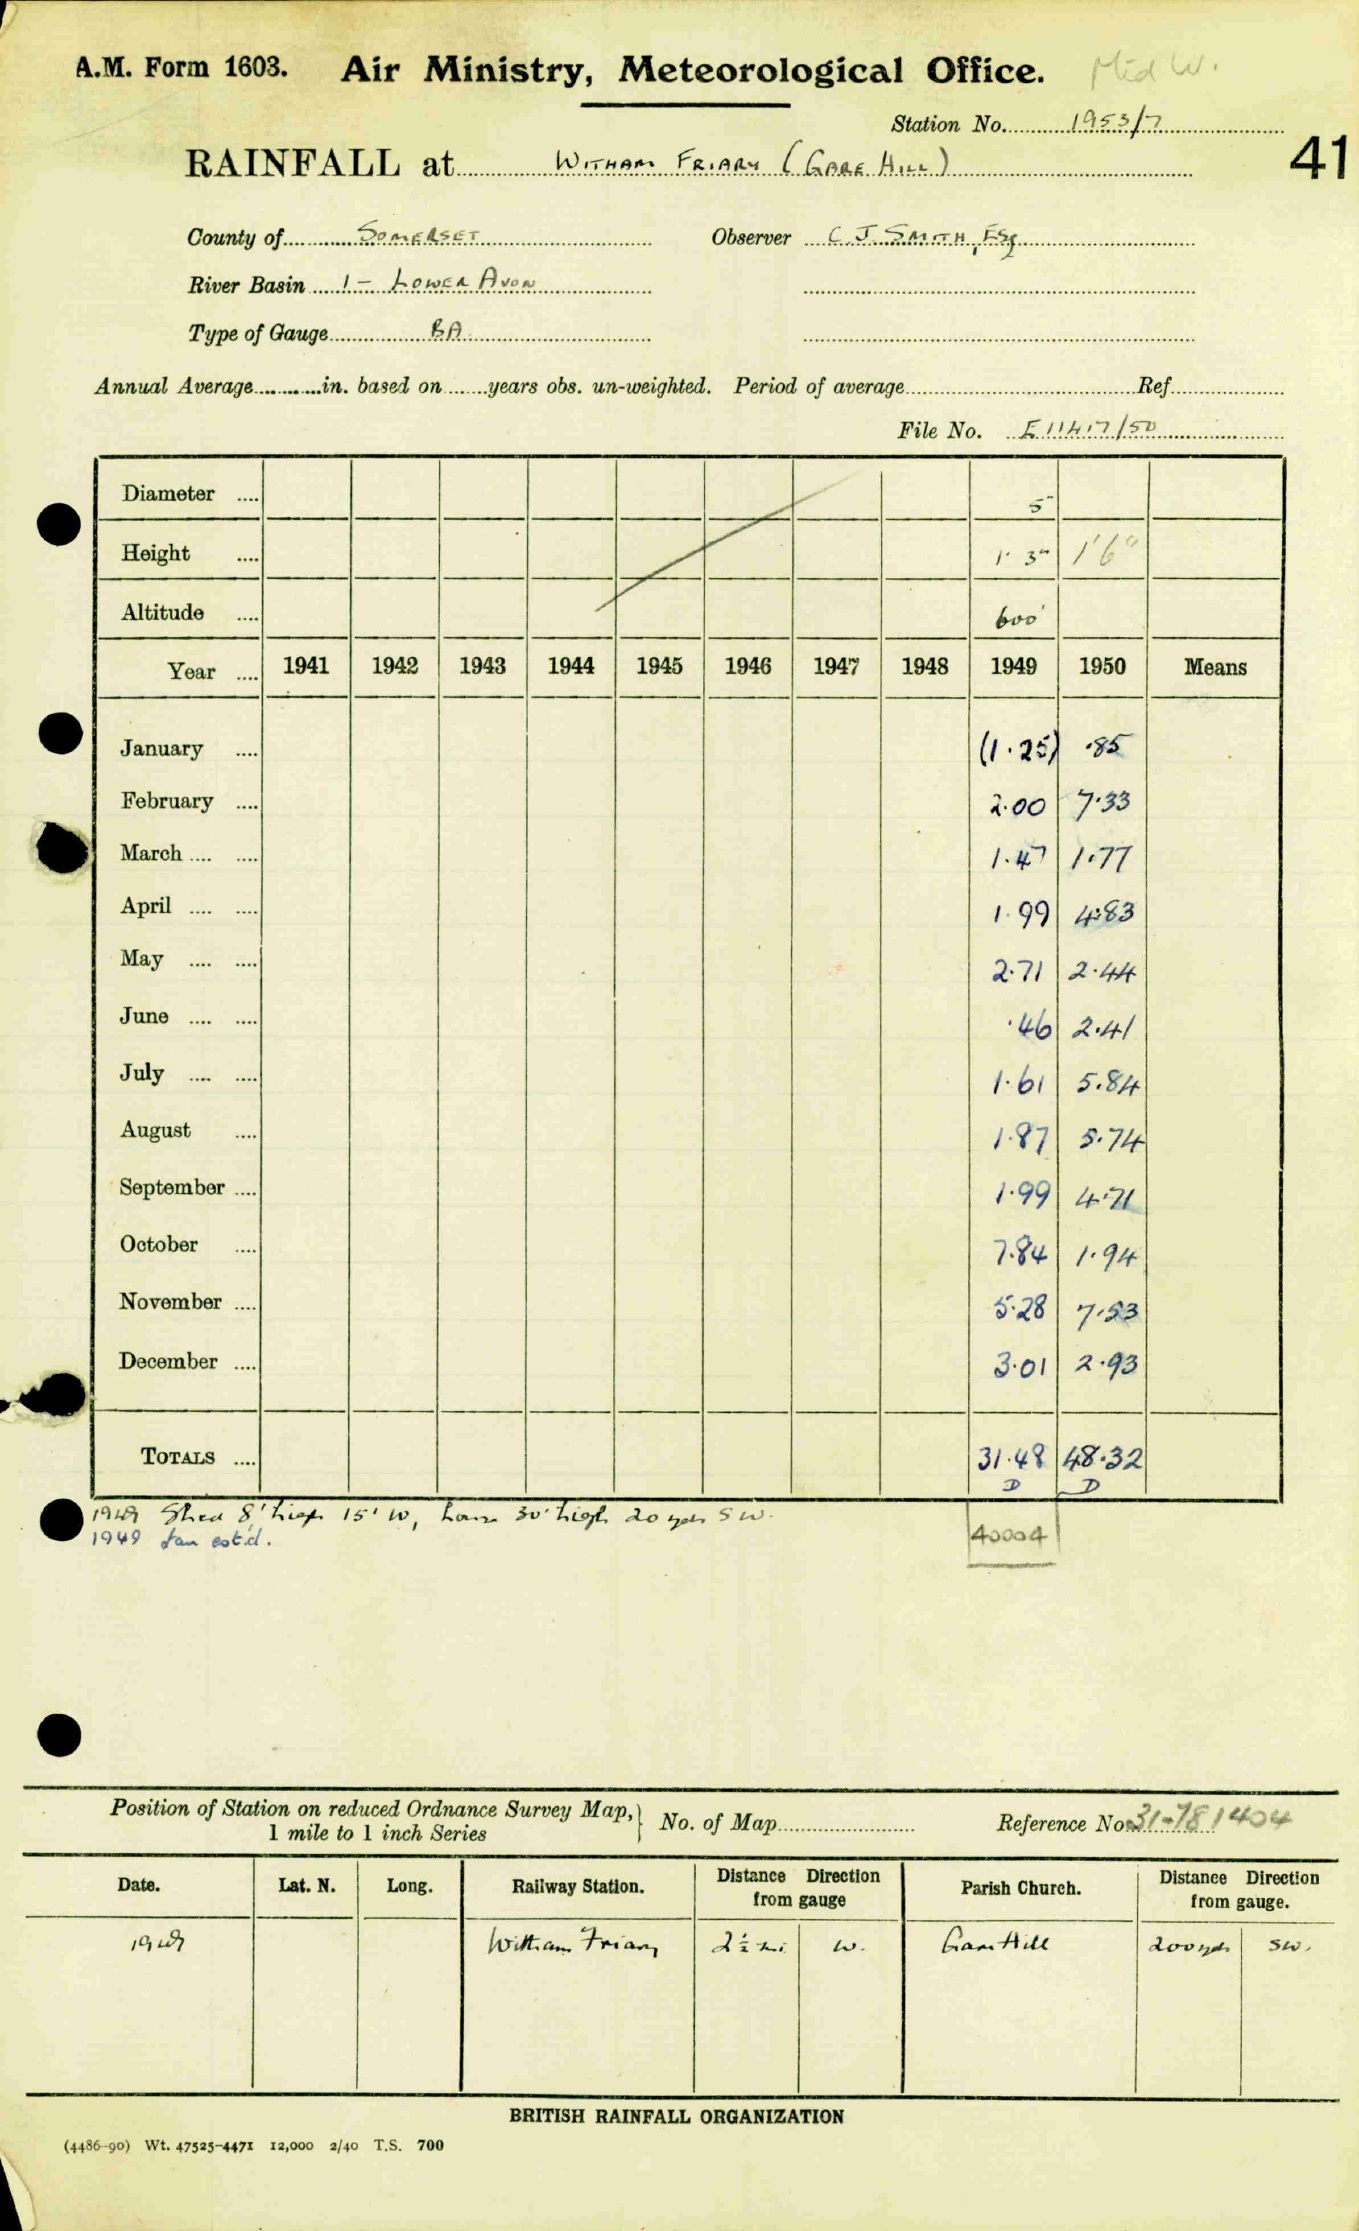 A.M. Form 1603. Air Ministry, Meteorological Office. Mid W.
Station No. 1953/7
RAINFALL at WITHAM FRIARY (GARE HILL) 41
County of SOMERSET Observer C. J. SMITH, ESq
River Basin 1 - LOWER AVON
Type of Gauge BA
Annual Average in. based on years obs. un-weighted. Period of average Ref.
File No. E 11417/50
Diameter .... 5"
Height .... 1' 3" 1'6"
Altitude .... 600'
Year .... 1941 1942 1943 1944 1945 1946 1947 1948 1949 1950 Means
January .... (1.25) .85
February .... 2.00 7.33
March .... .... 1.47 1.77
April .... .... 1.99 4.83
May .... .... 2.71 2.44
June .... .... .46 2.41
July .... .... 1.61 5.84
August .... 1.87 5.74
September .... 1.99 4.71
October .... 7.84 1.94
November .... 5.28 7.53
December .... 3.01 2.93
TOTALS .... 31.48 48.32
D D
1949 Shed 8' high 15' W, house 30' high 20 yds SW.
1949 Jan est'd. 40004
Position of Station on reduced Ordnance Survey Map, 1 mile to 1 inch Series } No. of Map Reference No. 31-781404
Date. Lat. N. Long. Railway Station. Distance Direction from gauge Parish Church. Distance Direction from gauge.
1949 Witham Friary 2½ mi. W. Gare Hill 200 yds SW.
BRITISH RAINFALL ORGANIZATION
(4486-90) Wt. 47525-4471 12,000 2/40 T.S. 700